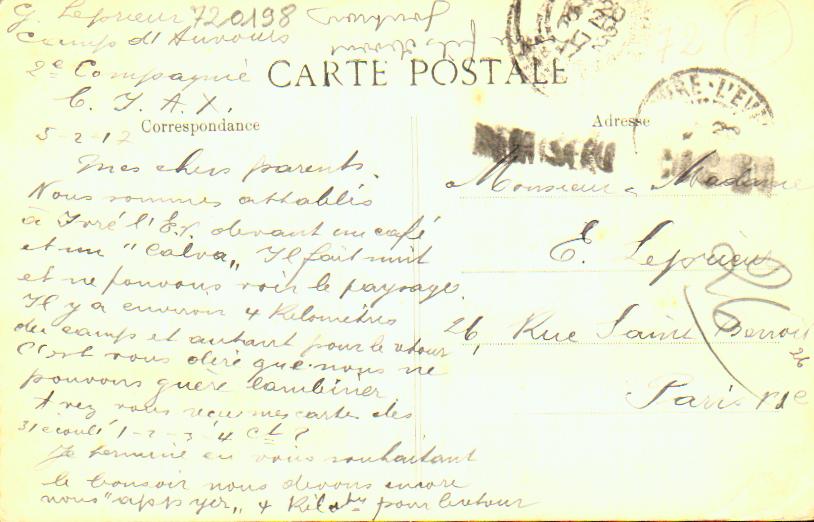 G. Leprieur 720198
Camp d'Auvours
2e Compagnie
C. I. A. X.
CARTE POSTALE
Correspondance
Adresse
5-2-17
Mes chers parents.
Nous sommes attablés
à Yvré l'Ev. devant un café
et un "Calva„ Il fait nuit
et ne pouvons voir le paysage.
Il y a environ 4 Kilomètres
du camp et autant pour le retour
C'est vous dire que nous ne
pouvons guère lambiner
Avez vous reçu mes cartes des
31 écoulé 1-2-3-4 ct ?
Je termine en vous souhaitant
le bonsoir nous devons encore
nous "appuyer„ 4 Kilo pour le retour
Monsieur Madame
E. Leprieur
26, Rue Saint Benoit
26
Paris
YVRE-L'EV
72
1